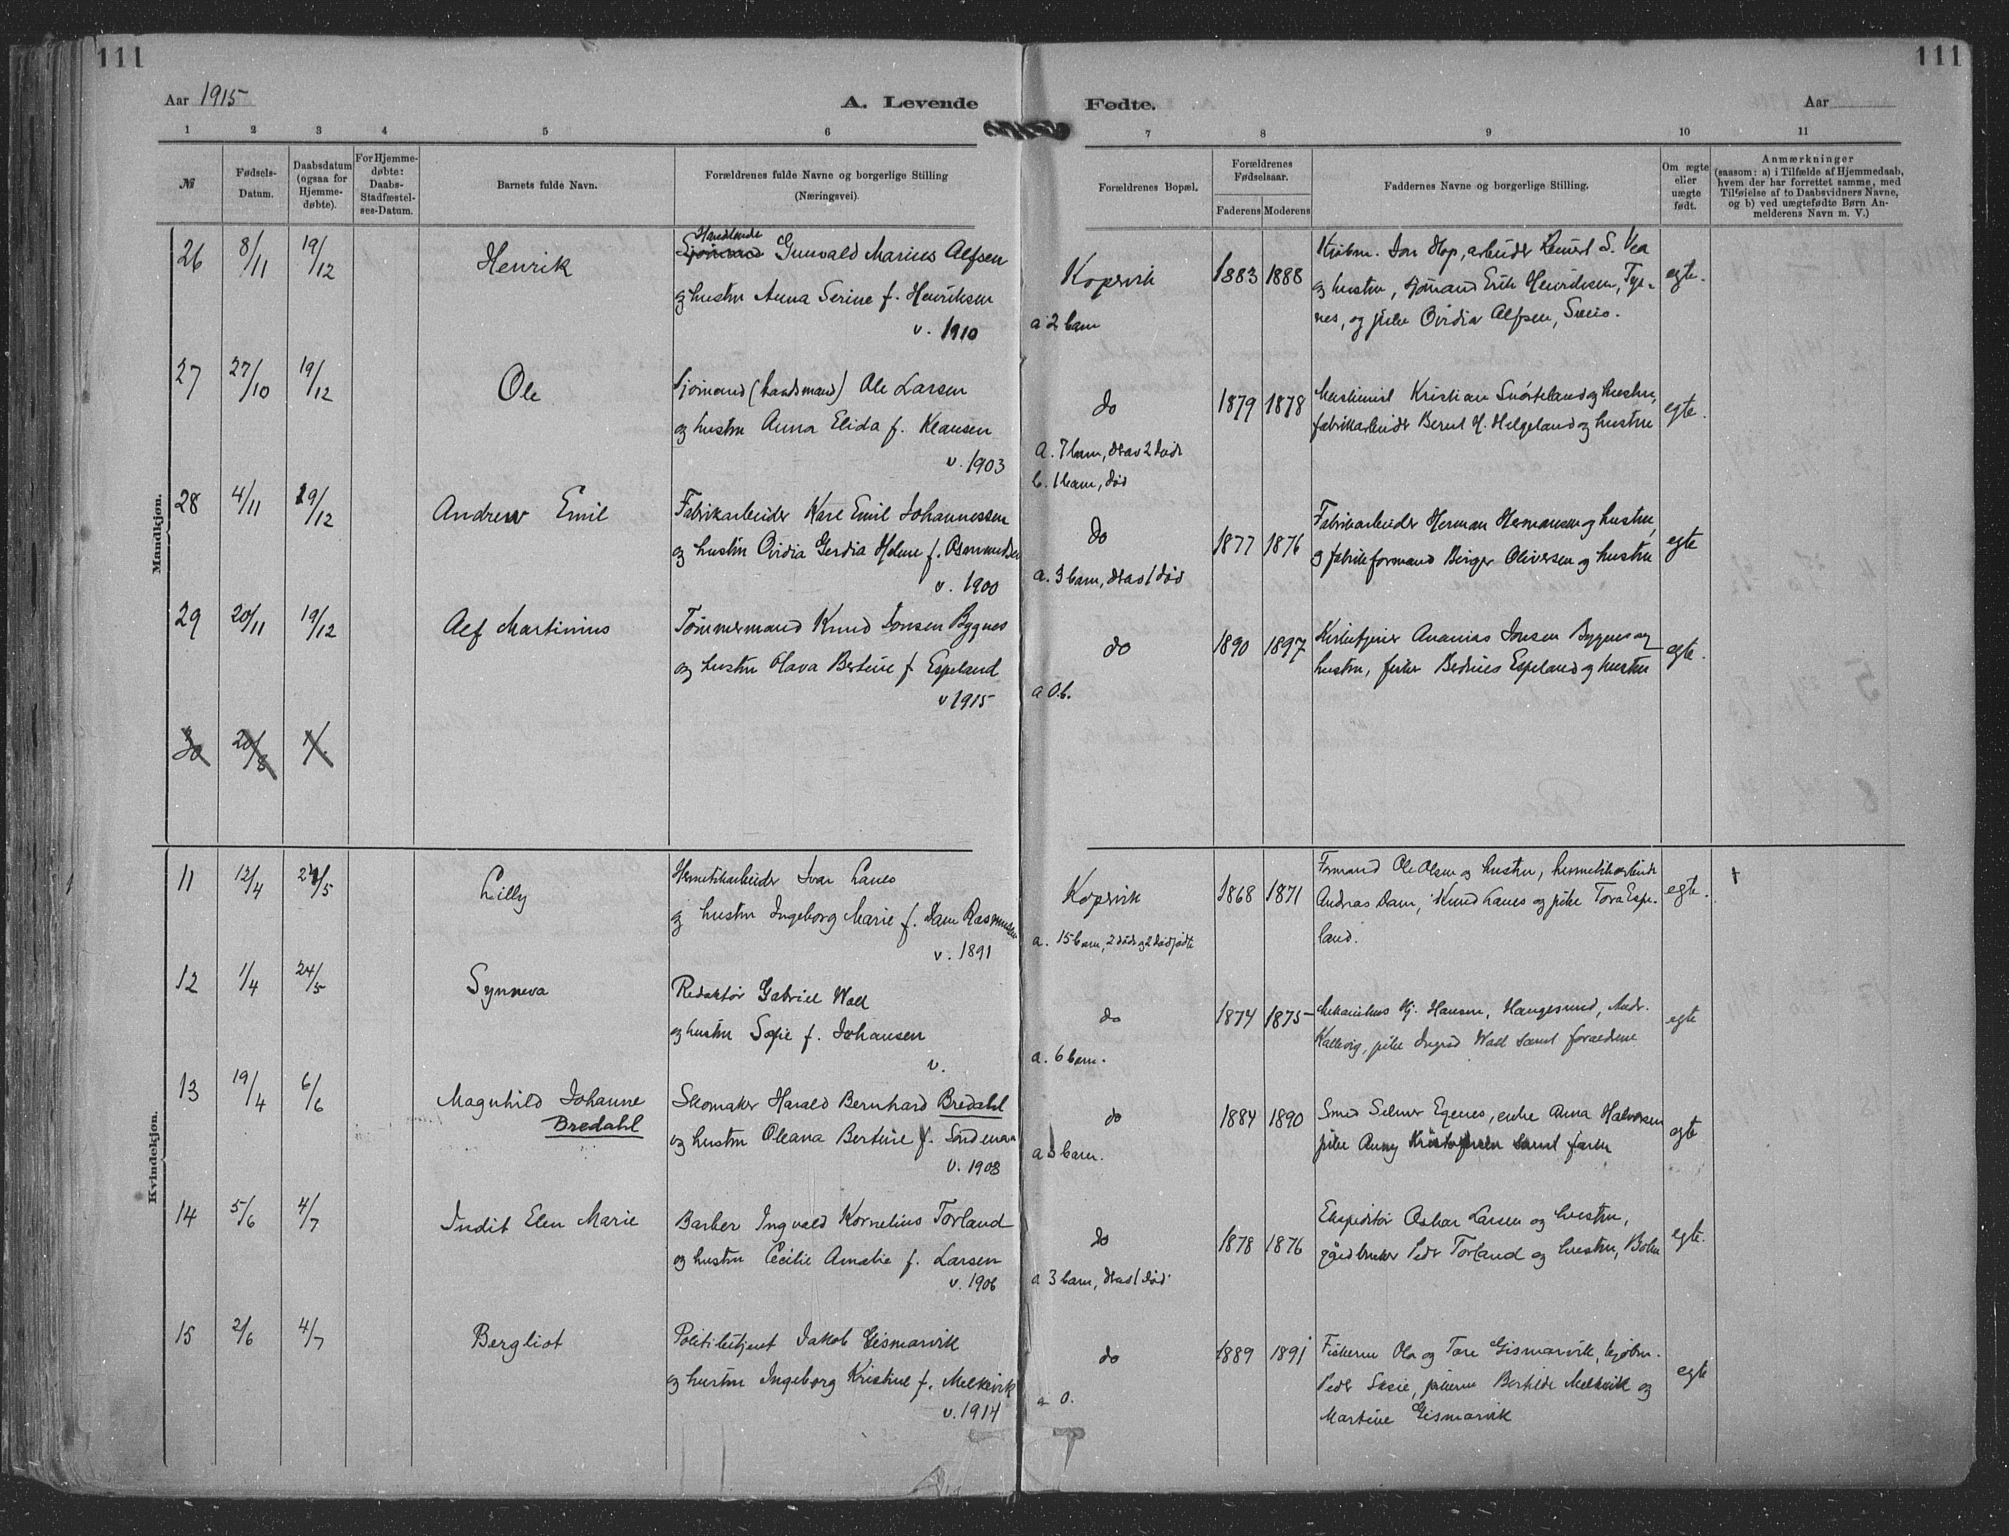 111
111
Aar 1915
A. Levende
Fødte.
Aar
1 2 3 4 5 6 7 8 9 10 11
№
Fødsels-
Datum.
Daabsdatum
(ogsaa for
Hjemme-
døbte).
For Hjemme-
døbte:
Daabs-
Stadfæstel-
ses-Datum.
Barnets fulde Navn.
Forældrenes fulde Navne og borgerlige Stilling
(Næringsvei).
Forældrenes Bopæl.
Forældrenes
Fødselsaar.
Faderens Moderens
Faddernes Navne og borgerlige Stilling.
Om ægte
eller
uægte
født.
Anmærkninger
(saasom: a) i Tilfælde af Hjemmedaab,
hvem der har forrettet samme, med
Tilføielse af to Daabsvidners Navne,
og b) ved uægtefødte Børn An-
melderens Navn m. V.)
Mandkjøn.
26 8/11 19/12 Henrik
Handlende
Sjømand Gunvald Marius Alfsen
og hustru Anna Serine f. Henriksen
v. 1910
Kopervik
a 2 barn
1883 1888
Kjøbm. Jon Hop, arbeider S. Vea
og hustru, sjømand Erik Henriksen, Tyt-
nes, og pike Ovidia Alfsen,
egte.
27 27/10 19/12 Ole
Sjømand (baadsmand) Ole Larsen
og hustru Anna Elida f. Klausen
v. 1903
do
a. 7 barn, derav 2 døde
b. 1 barn, død
1879 1878
Kristian og hustru,
fabrikarbeider Bernt H. Helgeland og hustru
egte.
28 4/11 19/12 Andrew Emil
Fabrikarbeider Karl Emil Johannessen
og hustru Ovidia Gerdia Helene f. Osmundsen
v. 1900
do
a. 3 barn, derav 1 død
1877 1876
Fabrikarbeider Herman Hermansen og hustru,
og fabrikformand Birger Oliversen og hustru
egte
29 20/11 19/12 Alf Martinius
Tømmermand Knud Jonsen Bygnes
og hustru Olava Bertine f. Espeland
v 1915
do
a 0 b.
1890 1897
Kirketjener Ananias Jonsen Bygnes og
hustru, fisker Espeland og hustru
egte.
30 20/8
Kvindekjøn.
11 12/4 24/5 Lilly
Hermetikarbeider Ivar Lanes
og hustru Ingeborg Marie f. Dam Rasmussen
v. 1891
Kopervik
a. 15 barn, 2 døde og 2 dødfødte
1868 1871
Formand Ole Olsen og hustru, hermetikarbeider
Andreas Dam, Knud Lanes og pike Tora Espe-
land.
egte.
12 1/4 24/5 Synneva
Redaktør Gabriel Wall
og hustru Sofie f. Johansen
v.
do
a. 6 barn.
1874 1875
Mekanikus Kj. Hansen, Haugesund, Andr.
Kallevig, pike Ingrid Wall samt forældrene
egte
13 19/4 6/6 Magnhild Johanne
Bredahl
Skomaker Harald Bernhard Bredahl
og hustru Oleana Bertine f. Søndenaa
v. 1908
do
a 3 barn.
1884 1890
Smed Selmer Egenes, enke Anna Halvorsen
pike Anny Kristofersen samt faren
egte
14 5/6 4/7 Indit Elen Marie
Barber Ingvald Kornelius Torland
og hustru Cecilie Amalie f. Larsen
v. 1906
do
a 3 barn, derav 1 død
1878 1876
Ekspeditør Oskar Larsen og hustru,
gårdbruker Peder Torland og hustru, Bokn
egte.
15 2/6 4/7 Bergliot
Politibetjent Jakob Gismarvik
og hustru Ingeborg Kristine f. Melkevik
v. 1914
do
a 0.
1889 1891
Fiskerne Ola og Tore Gismarvik, kjøbm.
Peder Susie, pikerne Bertilde Melkevik og
Martine Gismarvik
egte